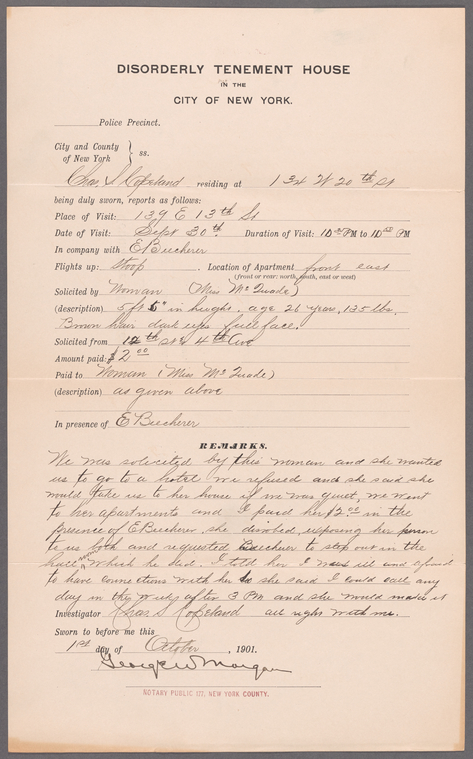 DISORDERLY TENEMENT HOUSE
IN THE
CITY OF NEW YORK.
Police Precinct.
City and County
of New York } ss.
Chas S Copeland residing at 134 W 20th St
being duly sworn, reports as follows:
Place of Visit: 139 E 13th St
Date of Visit: Sept 30th. Duration of Visit: 10 PM to 10 PM
In company with E Beecherer
Flights up: Stoop. Location of Apartment front east
(front or rear: north, south, east or west)
Solicited by Woman (Miss Mc Quade)
(description) 5 ft 6" in height. age 26 year, 135 lbs,
Brown hair dark eyes full face.
Solicited from 12th St & 4th Ave
Amount paid: $2.00
Paid to Woman (Miss Mc Quade)
(description) as given above
In presence of E Beecherer
REMARKS.
We was solicited by this woman and she wanted
us to go to a hotel we refused and she said she
would take us to her house if we was quiet, we went
to her apartments and I paid her $2.00 in the
presence of E Beecherer, she exposing her person
to us both and requested Beecherer to step out in the
hall which he did. I told her I was ill and afraid
to have connections with her so she said I could call any
day in the week after 3 PM and she would make it
Investigator Chas S Copeland all right with me.
Sworn to before me this
1st day of October, 1901.
George W Morgan
NOTARY PUBLIC NEW YORK COUNTY.